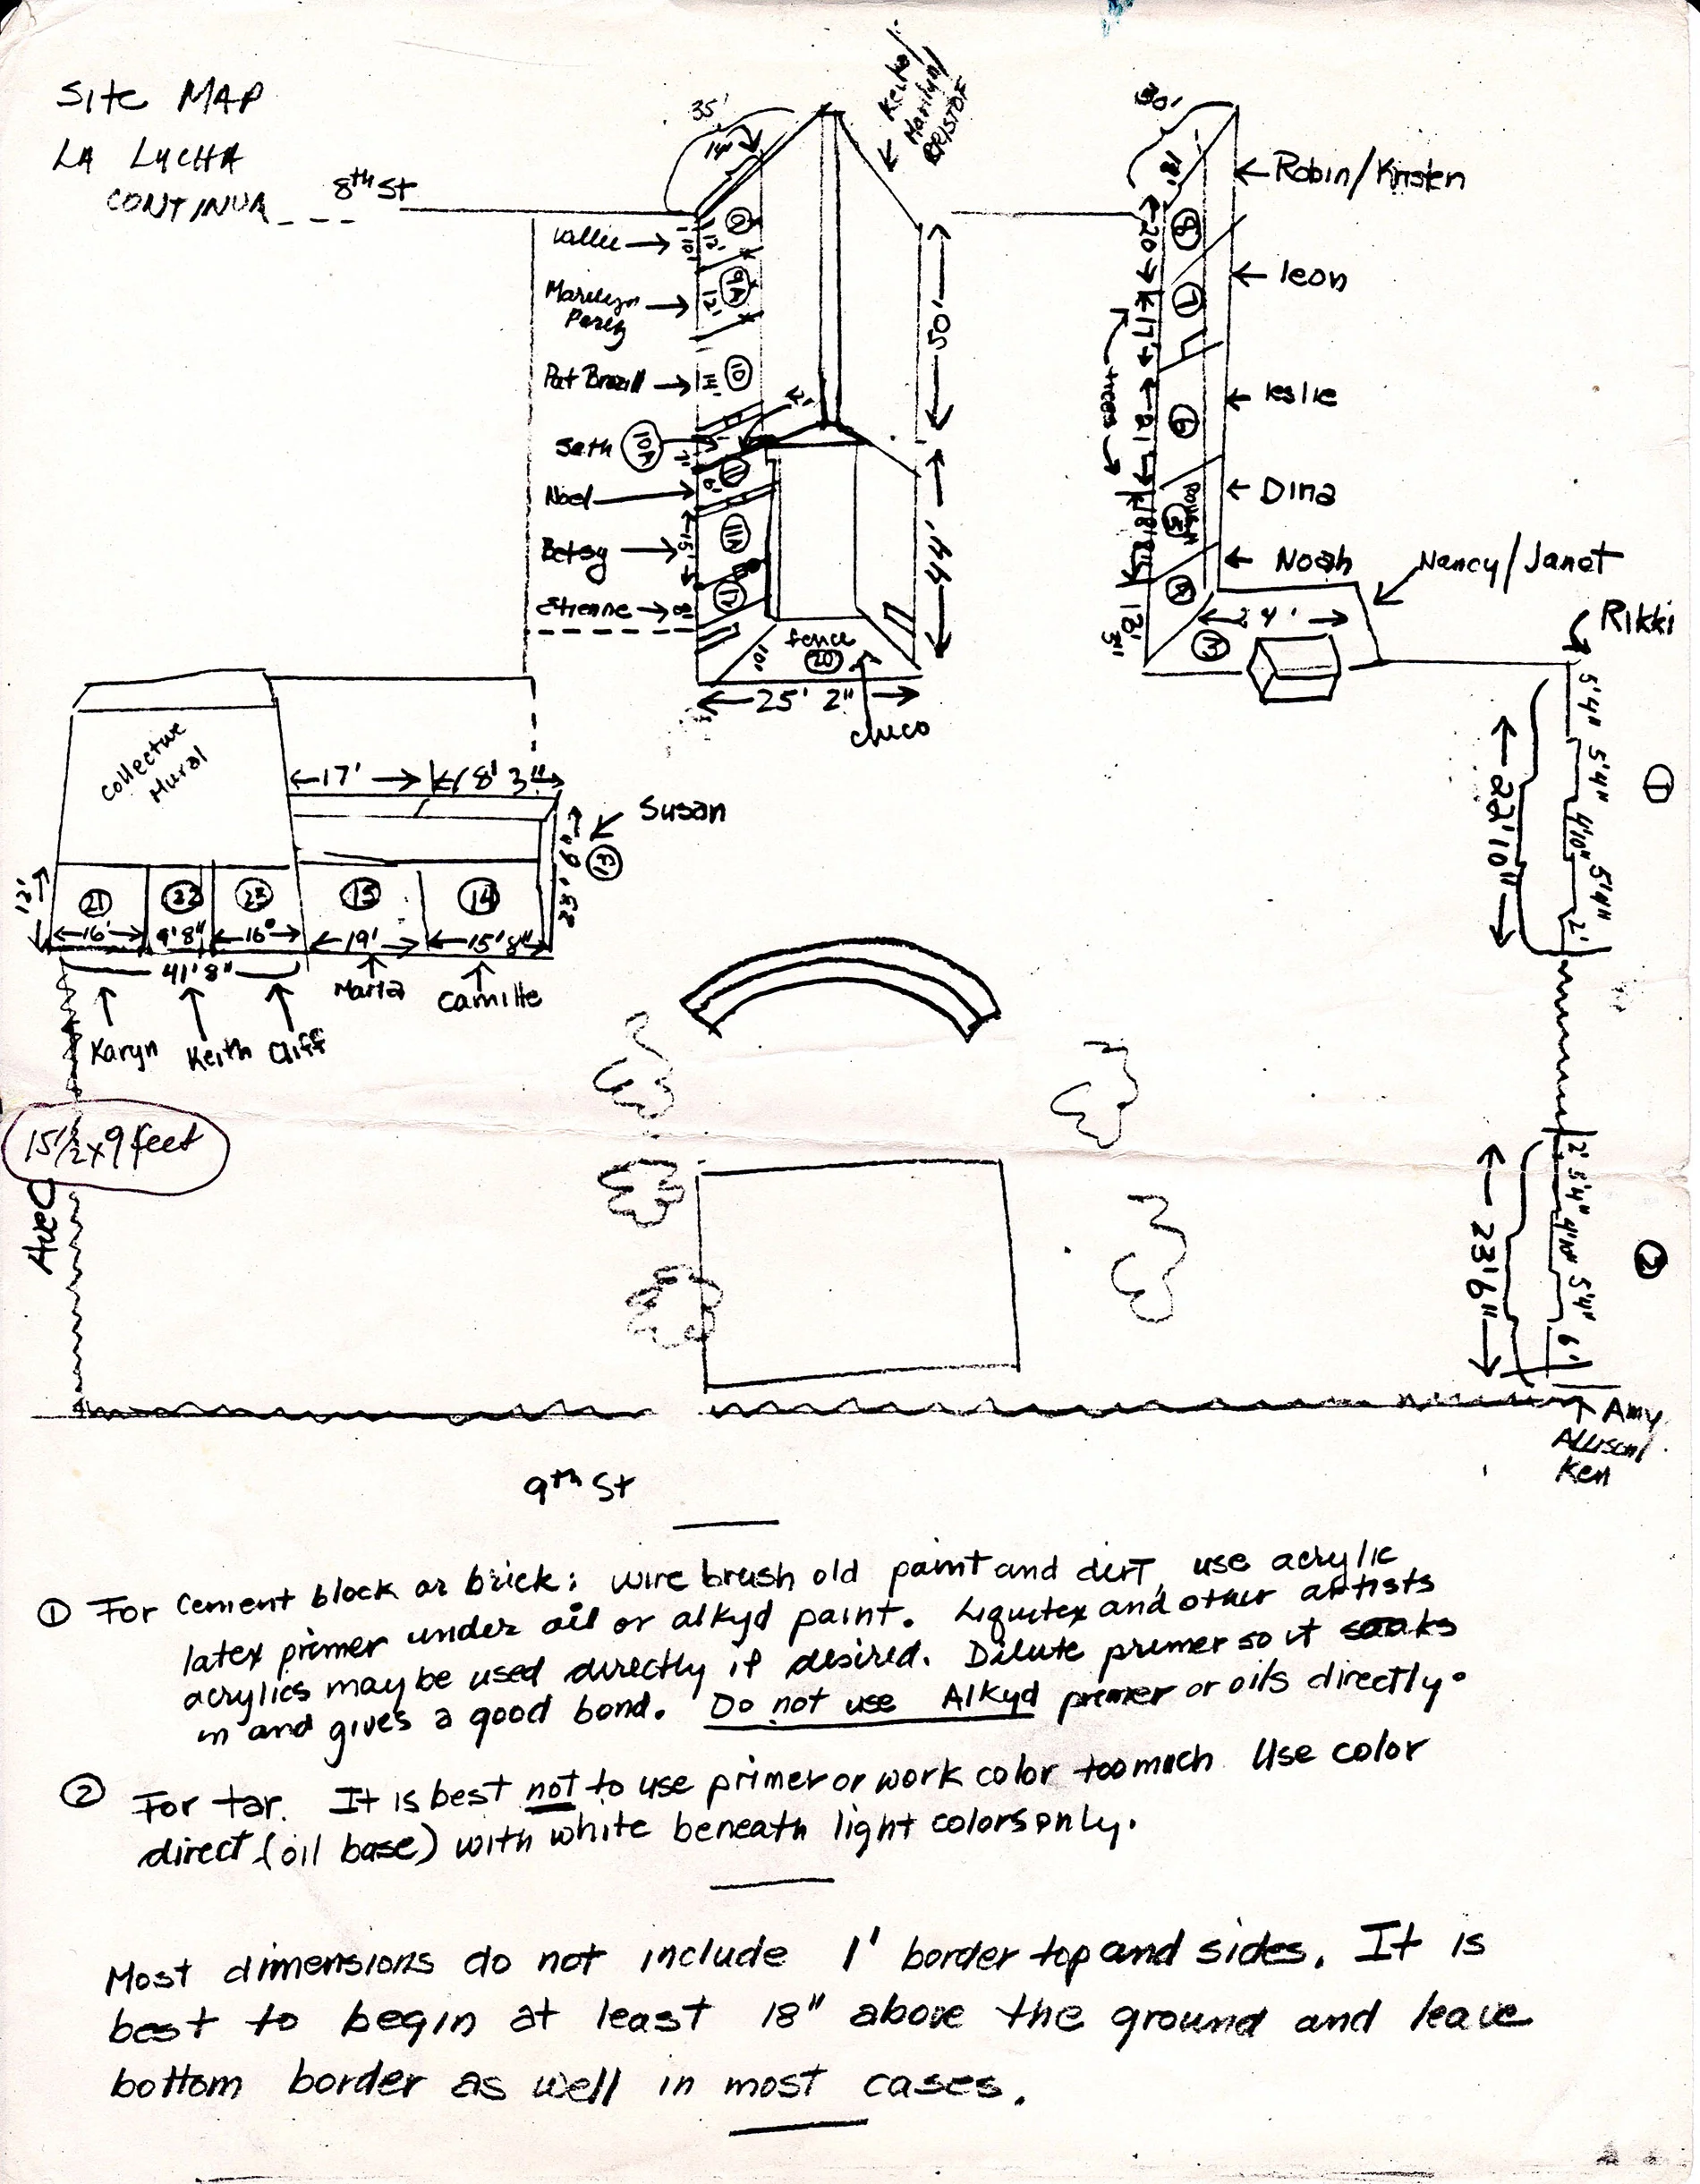 Site MAP
LA LUCHA
CONTINUA
8th St
35'
14'
Keith/
Marilyn/
BRISTOF
30'
18'
Robin/Kristen
Vallie
10'
12'
9
8
20
leon
Marilyn
Perez
12'
9A
50'
7
17'
trees
Pat Brazill
14'
10
leslie
6
21
Seth
10A
Dina
Noel
11
5
18'
44'
Betsy
15'
11A
Noah
Nancy/Janet
Etienne
8'
12
4
12'
3"
24'
3
Rikki
fence
20
10'
25' 2"
Chico
5'4"
5'4"
4'10"
5'4"
2'
22'10"
1
Collective
Mural
17'
18' 3"
Susan
12'
21
22
23
15
14
16'
9'8"
16°
19'
15'8"
41'8"
Maria
Camille
Karyn
Keith
Cliff
15 1/2 x 9 feet
Ave C
2'
5'4"
4'10"
5'4"
6'
23'6"
2
Amy
Allison/
Ken
9th St
① For cement block or brick: wire brush old paint and dirt, use acrylic
latex primer under oil or alkyd paint. Liquitex and other artists
acrylics may be used directly if desired. Dilute primer so it soaks
in and gives a good bond. Do not use Alkyd primer or oils directly.
② For tar. It is best not to use primer or work color too much Use color
direct (oil base) with white beneath light colors only.
Most dimensions do not include 1' border top and sides. It is
best to begin at least 18" above the ground and leave
bottom border as well in most cases.